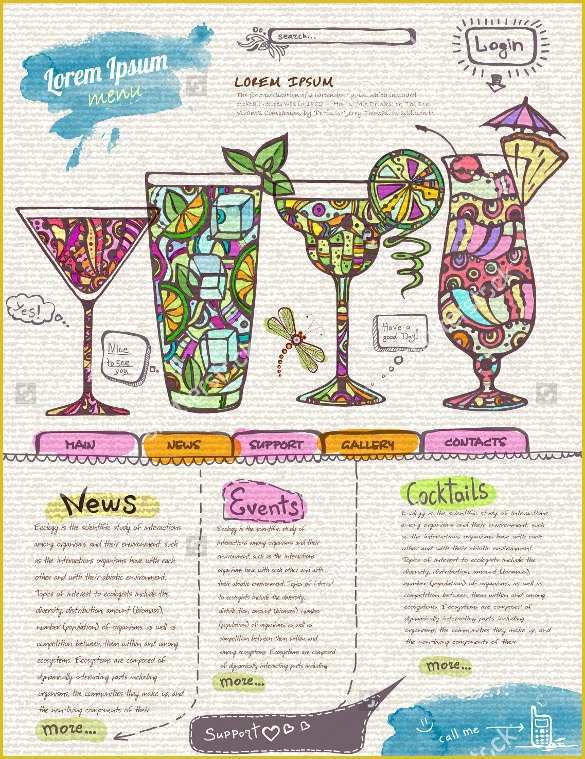 search...
Login
Lorem Ipsum
menu
LOREM IPSUM
Yes!
Nice
to see
you
Have a
good Day!
MAIN
NEWS
SUPPORT
GALLERY
CONTACTS
News
Ecology is the scientific study of interactions
among organisms and their environment, such
as the interactions organisms have with each
other and with their abiotic environment.
Topics of interest to ecologists include the
diversity, distribution, amount (biomass),
number (population) of organisms, as well as
competition between them within and among
ecosystems. Ecosystems are composed of
dynamically interacting parts including
organisms, the communities they make up, and
the non-living components of their
more...
Events
Ecology is the scientific study of
interactions among organisms and their
environment, such as the interactions
organisms have with each other and with
their abiotic environment. Topics of interest
to ecologists include the diversity,
distribution, amount (biomass), number
(population) of organisms, as well as
competition between them within and
among ecosystems. Ecosystems are composed
of dynamically interacting parts including
more...
Cocktails
Ecology is the scientific study of interactions
among organisms and their environment, such
as the interactions organisms have with each
other and with their abiotic environment.
Topics of interest to ecologists include the
diversity, distribution, amount (biomass),
number (population) of organisms, as well as
competition between them within and among
ecosystems. Ecosystems are composed of
dynamically interacting parts including
organisms, the communities they make up, and
the non-living components of their
more...
Support
call me